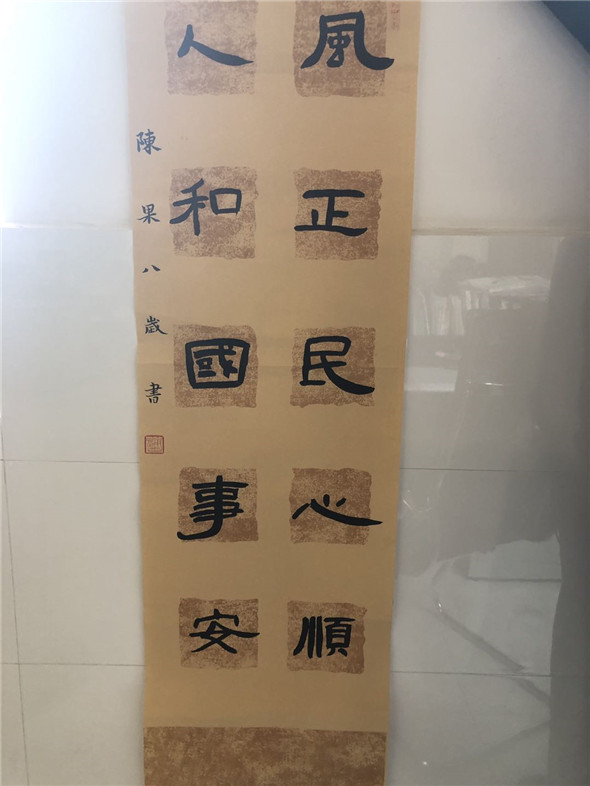 風正民心順
人和國事安
陳果八歲書